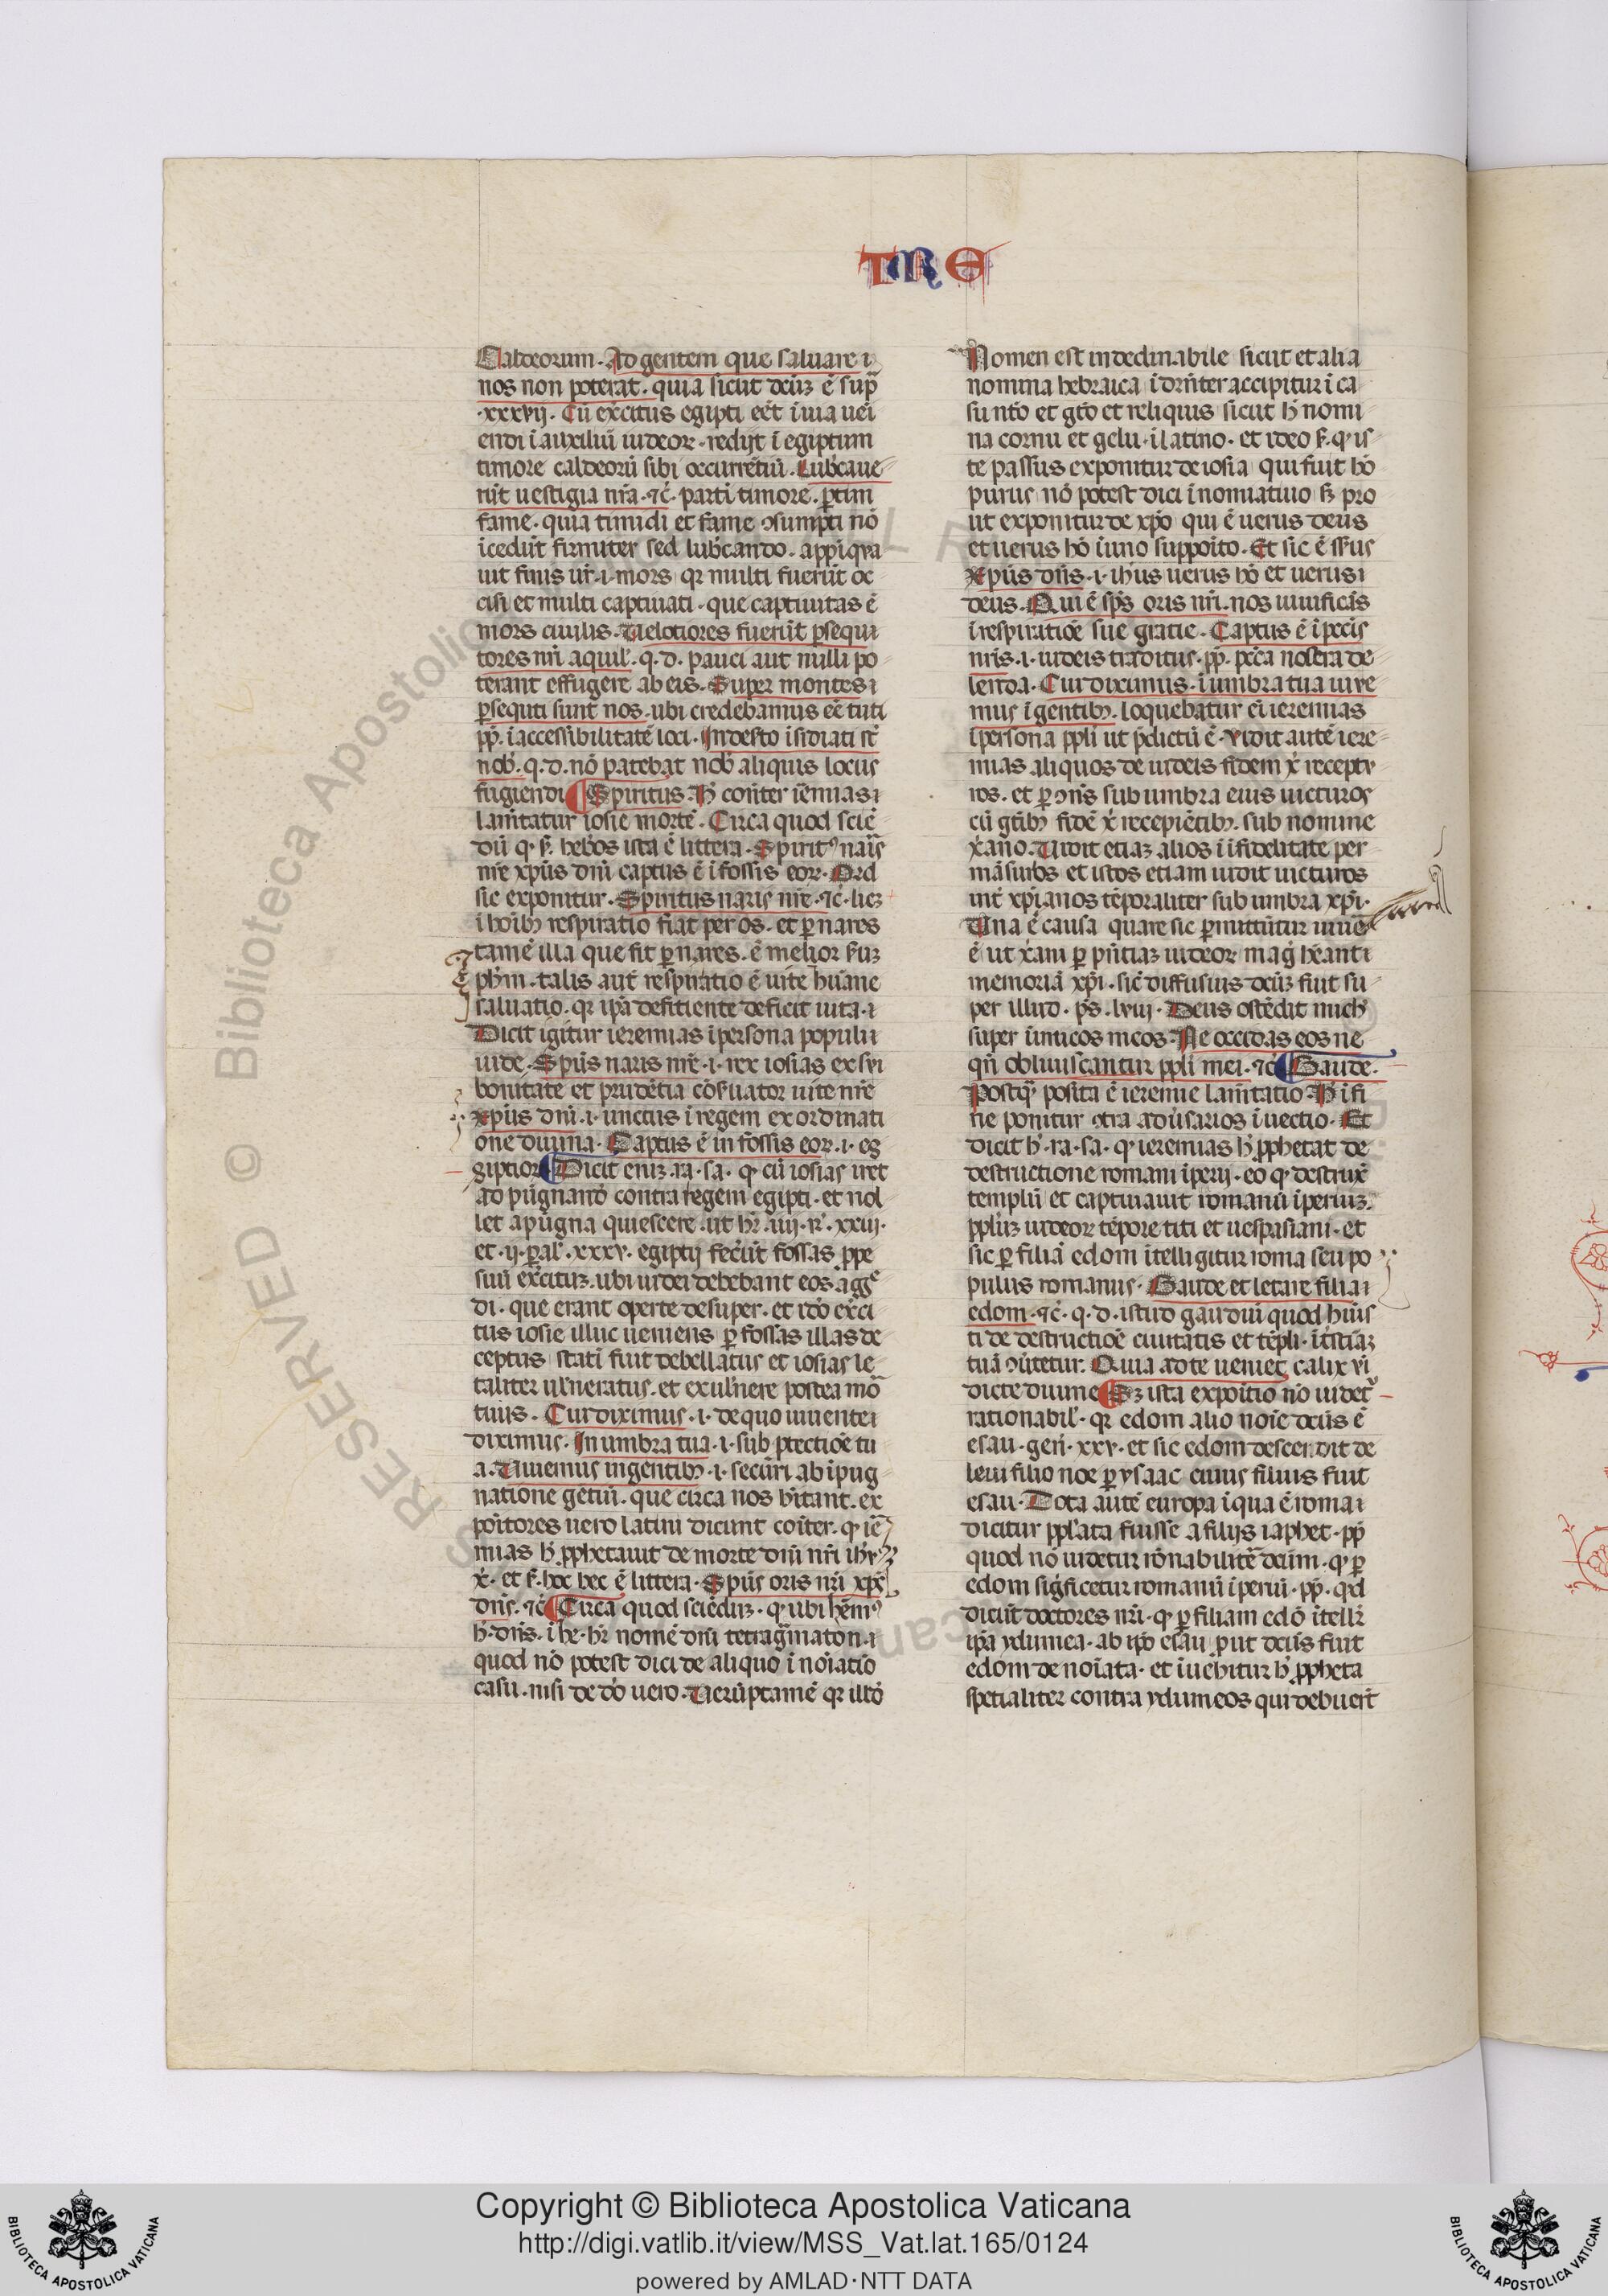 TRE
Caldeorum. Ad gentem que saluare
nos non poterat. quia sicut dcũz ẽ sup̃
.xxxvij. Cũ exc̃itus egipti eẽt ĩ uia uei
endi ĩ auxiliũ iudeoꝝ. redijt ĩ egiptum
timore caldeoꝝ sibi occurrẽtiũ. Lubcaue
rũt uestigia nr̃a. ⁊c̃. parti timore. ꝑtim
fame. quia timidi et fame ꝯsumpti nõ
ĩcedũt firmiter sed lub̾cando. appĩqua
uit finis ur̃. .i. mors qꝛ multi fuerũt oc
cisi et multi captiuati. que captiuitas ẽ
mors ciuilis. Uelociores fuerũt ꝑsequ
tores nr̃i aquil̾. q.d. pauci aut nulli po
terant effugere ab eis. Super montes
ꝑsequti sunt nos. ubi credebamus eẽ tuti
ꝓp̃. ĩaccessibilitatẽ loci. In deſto ĩsidiati st̃
nob̾. q.d. nõ patebat nob̾ aliquis locus
fugiendi ¶ Spiritus. H̾ cõiter ieremias
lam̃tatur iosie mortẽ. Circa quod sciẽ
dũ qꝫ s̃. heb̾os ista ẽ littera. Spiritꝰ nariũ
nr̃e xp̃us dñi captus ẽ ĩ fossis eoꝝ. Qd̾
sic exponitur. Spiritus naris nr̃e. ⁊c̃. licꝫ
ĩ hoĩbꝫ respiratio fiat per os. et ꝑ nares
tamẽ illa que fit ꝑ nares. ẽ melior s̃uꝫ
ph̃m. talis aut̃ respiratio ẽ uite hũane
saluatio. qꝛ ip̃a defitiente deficit uita.
Dicit igitur ieremias ĩ persona populi
iude. Sp̃us naris nr̃e. .i. rex iosias ex sui
bonitate et prudẽtia cõseruator uite nr̃e
xp̃us dñi. .i. unctus ĩ regem ex ordinati
one diuina. Captus ẽ in fossis eoꝝ. .i. eg
giptioꝝ ¶ Dicit eniꝫ. ra. sa. qꝫ cũ iosias iret
ad pũgnandũ contra regem egipti. et nol
let a pũgna quiescere. ut hr̃. .iiij. r̃. xxiij.
et. ij. ꝑal̾. xxxv. egiptij fec̃ũt fossas ꝓpe
suũ exc̃ituꝫ. ubi iudei debebant eos agg̾e
di. que erant operte desuper. et id̾o exc̃i
tus iosie illuc ueniens ꝑ fossas illas de
ceptus stati fuit debellatus et iosias le
taliter uul̾neratus. et ex uul̾nere postea mõ
tuus. Cui diximus. .i. de quo iuuentei
diximus. In umbra tua. .i. sub ꝓtectiõe tu
a. Uiuemus in gentibꝫ. .i. secũri ab ipug
natione gẽtiũ. que circa nos hĩtant. ex
põitores uero latini dicunt cõiter. qꝫ iẽ
mias h̾ ꝓphetauit de morte dñi nr̃i ih̃u
x̃. et s̃. hoc hec ẽ littera. Sp̃us oris nr̃i xp̃s
dñs. ⁊c̃ ¶ Circa quod sciẽduꝫ. qꝫ ubi hẽmꝰ
h̾. dñs. ĩ he. hr̃ nomẽ dñi tetrag̃maton.
quod nõ potest dici de aliquo ĩ noĩatiõ
casu. nisi de d̾o uero. Uerũptamẽ qꝛ illd̾
Nomen est indeclinabile sicut et alia
nomina hebraica ĩdr̃nter accipitur ĩ ca
su nt̃o et gt̃o et reliquis sicut h̾ nomi
na cornu et gelu. ĩ latino. et ideo s̃. qꝫ is
te passus exponitur de iosia qui fuit hõ
purus nõ potest dici ĩ nomiatiuo sꝫ pro
ut exponitur de xp̃o qui ẽ uerus deus
et uerus hõ ĩ uno suppoĩto. Et sic ẽ ss̃us
xp̃us dñs. .i. ih̾us uerus hõ et uerus
deus. Qui ẽ sp̃s oris nr̃i. nos uiuificãs
ĩ respiratiõe sue gratie. Captus ẽ ĩ pcc̃is
nr̃is. .i. iudeis traditus. ꝓp̃. pcc̃a nostra de
lenda. Cui diximus. ĩ umbra tua uiue
mus ĩ gentibꝫ. loquebatur eĩ ieremias
ĩ persona ppl̃i ut p̾dictũ ẽ. vidit autẽ iere
mias aliquos de iudeis fidem x̃ receptu
ros. et ꝑ ꝯñs sub umbra eius uicturos
cũ gẽtibꝫ fidẽ x̃ recepiẽtibꝫ. sub nomine
x̃ano. Uidit etiaꝫ alios ĩ ĩfidelitate per
mãsuros et istos etiam uidit uicturos
int̾ xp̃ianos tẽporaliter sub umbra xp̃i.
Una ẽ causa quare sic ꝑmittũtur uiuẽ
ẽ ut x̃ani ꝑ pñtiaꝫ iudeoꝝ mag̾ hẽanti
memoriã xp̃i. sic̃ diffusius dcũꝫ fuit su
per illud. ps̃. lviij. Deus ostẽdit mich̾
super ĩimicos meos. Ne occidas eos ne
qñ obliuiscantur ppl̃i mei. ⁊c̃ ¶ Gaude.
Postqꝫ posita ẽ ieremie lam̃tatio. H̾ ĩ fi
ne ponitur ꝯtra aduersarios ĩuectio. Et
dicit h̾. ra. sa. qꝫ ieremias h̾ ꝓphetat de
destructione romani ĩperij. eo qꝫ destrux̾
templũ et captiuauit romanũ ĩperiuꝫ.
ppl̃uꝫ iudeoꝝ tẽpore titi et uespasiani. et
sic ꝑ filiã edom ĩtelligitur roma seu po
pulus romanus. Gaude et letare filia
edom. ⁊c̃. q.d. istud gaudiũ quod h̾uis
ti de destructiõe ciuitatis et tẽpli. ĩ tristiaꝫ
tuã ꝯũtetur. Quia ad te ueniet calix vĩ
dicte diuine ¶ Sꝫ ista expoĩtio nõ uidet̾
rationabil̾. qꝛ edom alio noĩe dcũs ẽ
esau. gen̾. xxv. et sic edom descendit de
leui filio noe ꝑ ysaac cuius filius fuit
esau. Tota autẽ europa ĩ qua ẽ roma
dicitur ppl̃ata fuisse a filijs iaphet. ꝓp̃
quod nõ uidetur rõnabilitẽ dcũm. qꝫ ꝑ
edom sig̾ficetur romanũ ĩperiũ. ꝓp̃. qd̾
dicũt doctores nr̃i. qꝫ ꝑ filiam edõ ĩtell̾r
ip̃a ydumea. ab ip̃o esau ꝓut dcũs fuit
edom denoĩata. et ĩuehitur h̾ ꝓpheta
spetialiter contra ydumeos qui debuerũt
Copyright © Biblioteca Apostolica Vaticana
http://digi.vatlib.it/view/MSS_Vat.lat.165/0124
powered by AMLAD·NTT DATA